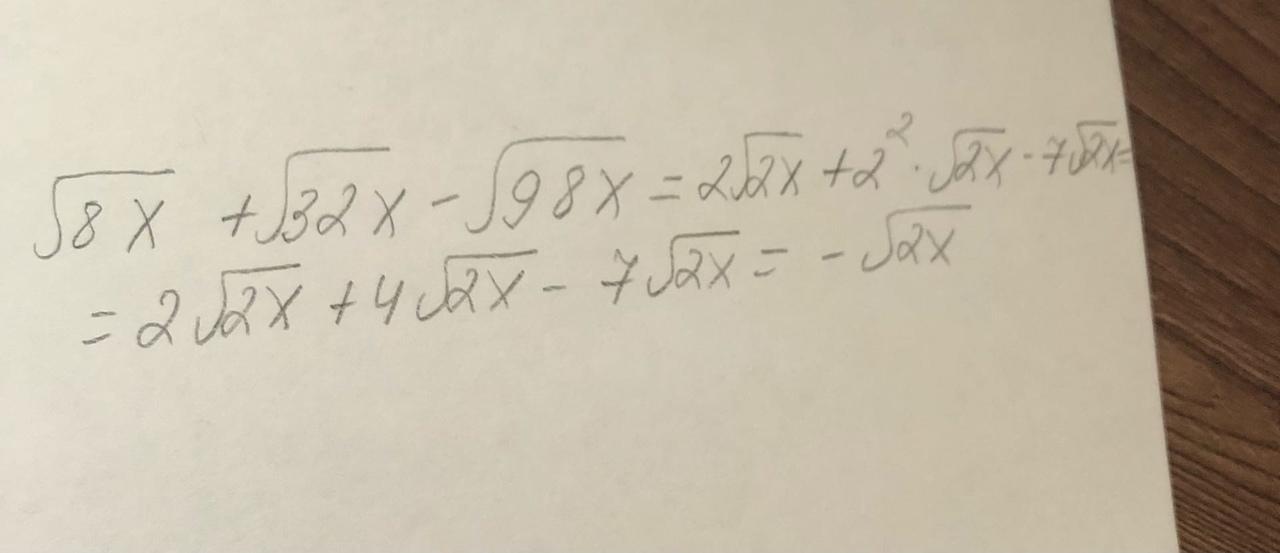 √8x + √32x - √98x = 2√2x + 2² · √2x - 7√2x =
= 2√2x + 4√2x - 7√2x = - √2x